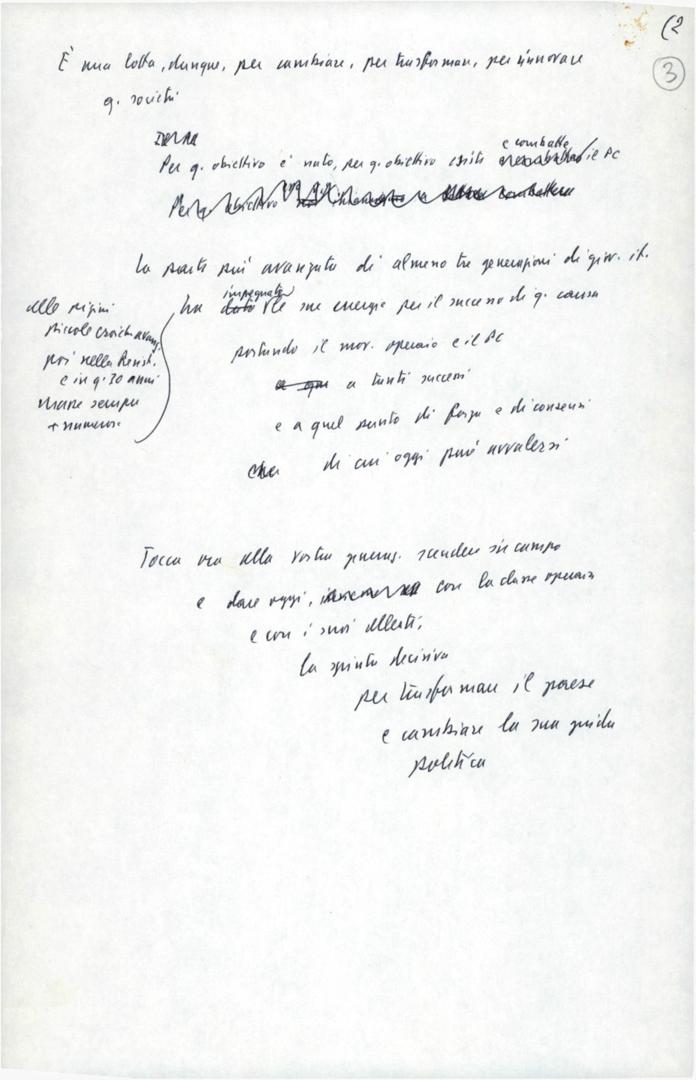 (2
3
È una lotta, dunque, per cambiare, per trasformare, per rinnovare
q. società
Per q. obiettivo è nato, per q. obiettivo esiste e combatte il PC
Per q. obiettivo
la parte più avanzata di almeno tre generazioni di giov. it.
ha impegnato le sue energie per il successo di q. causa
dalle prigini
piccole eroiche avang.
poi nella Resist.
e in q. 30 anni
masse sempre
+ numerose
portando il mov. operaio e il PC
a tanti successi
e a quel punto di forza e di consensi
di cui oggi può avvalersi
Tocca ora alla vostra generaz. scendere in campo
e dare oggi, con la classe operaia
e con i suoi alleati,
la spinta decisiva
per trasformare il paese
e cambiare la sua guida
politica